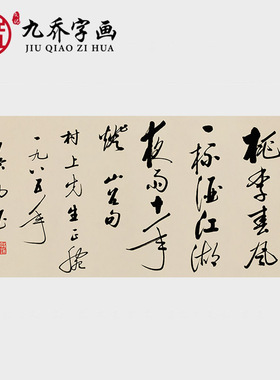 九乔字画
JIU QIAO ZI HUA
桃李春风
一杯酒江湖
夜雨十年
燈 山谷句
村上先生正腕
一九八五年